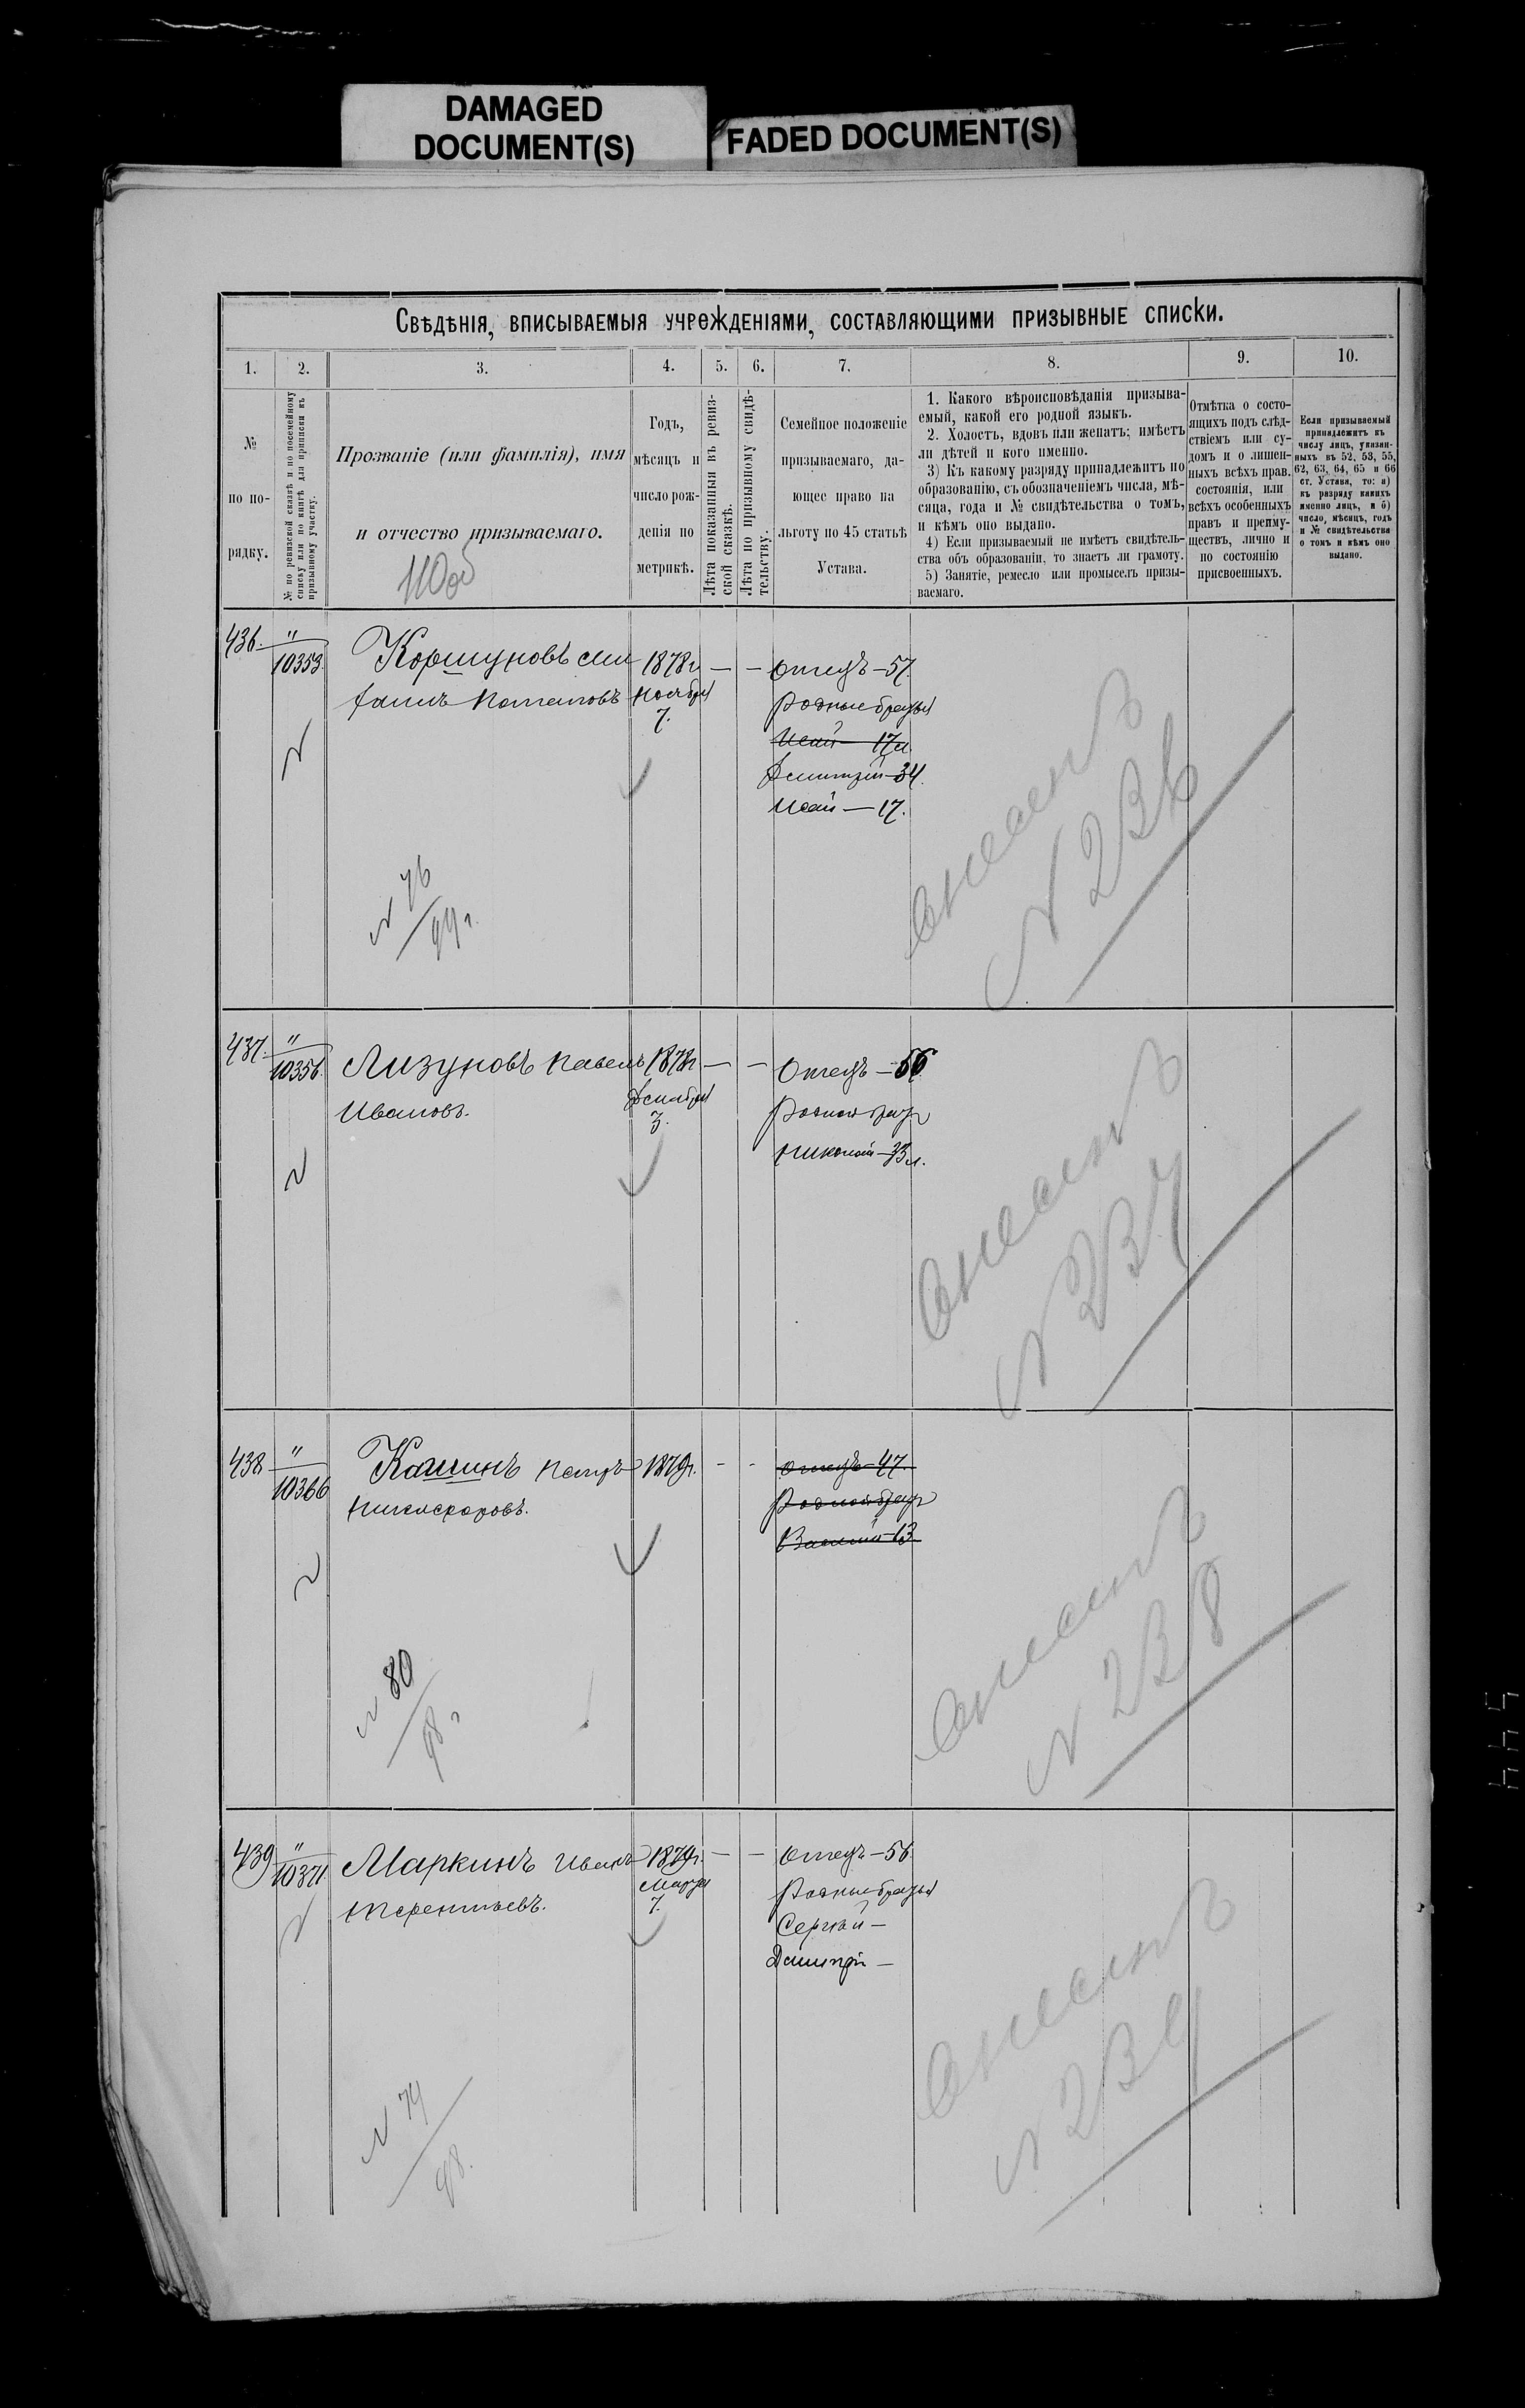 DAMAGED
DOCUMENT(S)
FADED DOCUMENT(S)
Свѣдѣнія, вписываемыя учрежденіями, составляющими призывные списки.
1. 2. 3. 4. 5. 6. 7. 8. 9. 10.
№
по по-
рядку.
№ по ревизской сказкѣ и по посемейному
списку или по книгѣ для приписки къ
призывному участку.
Прозваніе (или фамилія), имя
и отчество призываемаго.
Годъ,
мѣсяцъ и
число рож-
денія по
метрикѣ.
Лѣта показанныя въ ревиз-
ской сказкѣ.
Лѣта по призывному свидѣ-
тельству.
Семейное положеніе
призываемаго, да-
ющее право на
льготу по 45 статьѣ
Устава.
1. Какого вѣроисповѣданія призыва-
емый, какой его родной языкъ.
2. Холостъ, вдовъ или женатъ; имѣетъ
ли дѣтей и кого именно.
3) Къ какому разряду принадлежитъ по
образованію, съ обозначеніемъ числа, мѣ-
сяца, года и № свидѣтельства о томъ,
и кѣмъ оно выдано.
4) Если призываемый не имѣетъ свидѣтель-
ства объ образованіи, то знаетъ ли грамоту.
5) Занятіе, ремесло или промыселъ призы-
ваемаго.
Отмѣтка о состо-
ящихъ подъ слѣд-
ствіемъ или су-
домъ и о лишен-
ныхъ всѣхъ прав.
состоянія, или
всѣхъ особенныхъ
правъ и преиму-
ществъ, лично и
по состоянію
присвоенныхъ.
Если призываемый
принадлежитъ къ
числу лицъ, указан-
ныхъ въ 52, 53, 55,
62, 63, 64, 65 и 66
ст. Устава, то: а)
къ разряду какихъ
именно лицъ, и б)
число, мѣсяцъ, годъ
и № свидѣтельства
о томъ и кѣмъ оно
выдано.
436. " Коршуновъ 1878г — — Отецъ — 57.
10353 Ноября Родные братья
7. Исай — 17л
Дмитрій — 34.
Исай — 17.
N 76
99г.
N 236
437. " Лизуновъ Павелъ 1878г — — Отецъ — 56
10356 Ивановъ. Декабря Родной братъ
3. Николай — 33л.
N 237
438 " Кашинъ Петръ 1879г. - - Отецъ — 47.
10366 Никифоровъ. Родной братъ
Василій — 13
N 80
98г
N 238
439 " Маркинъ Иванъ 1879г. — — Отецъ — 56
10371 Терентьевъ. Марта Родные братья
7. Сергѣй —
Дмитрій —
N 79
98.
N 239
544